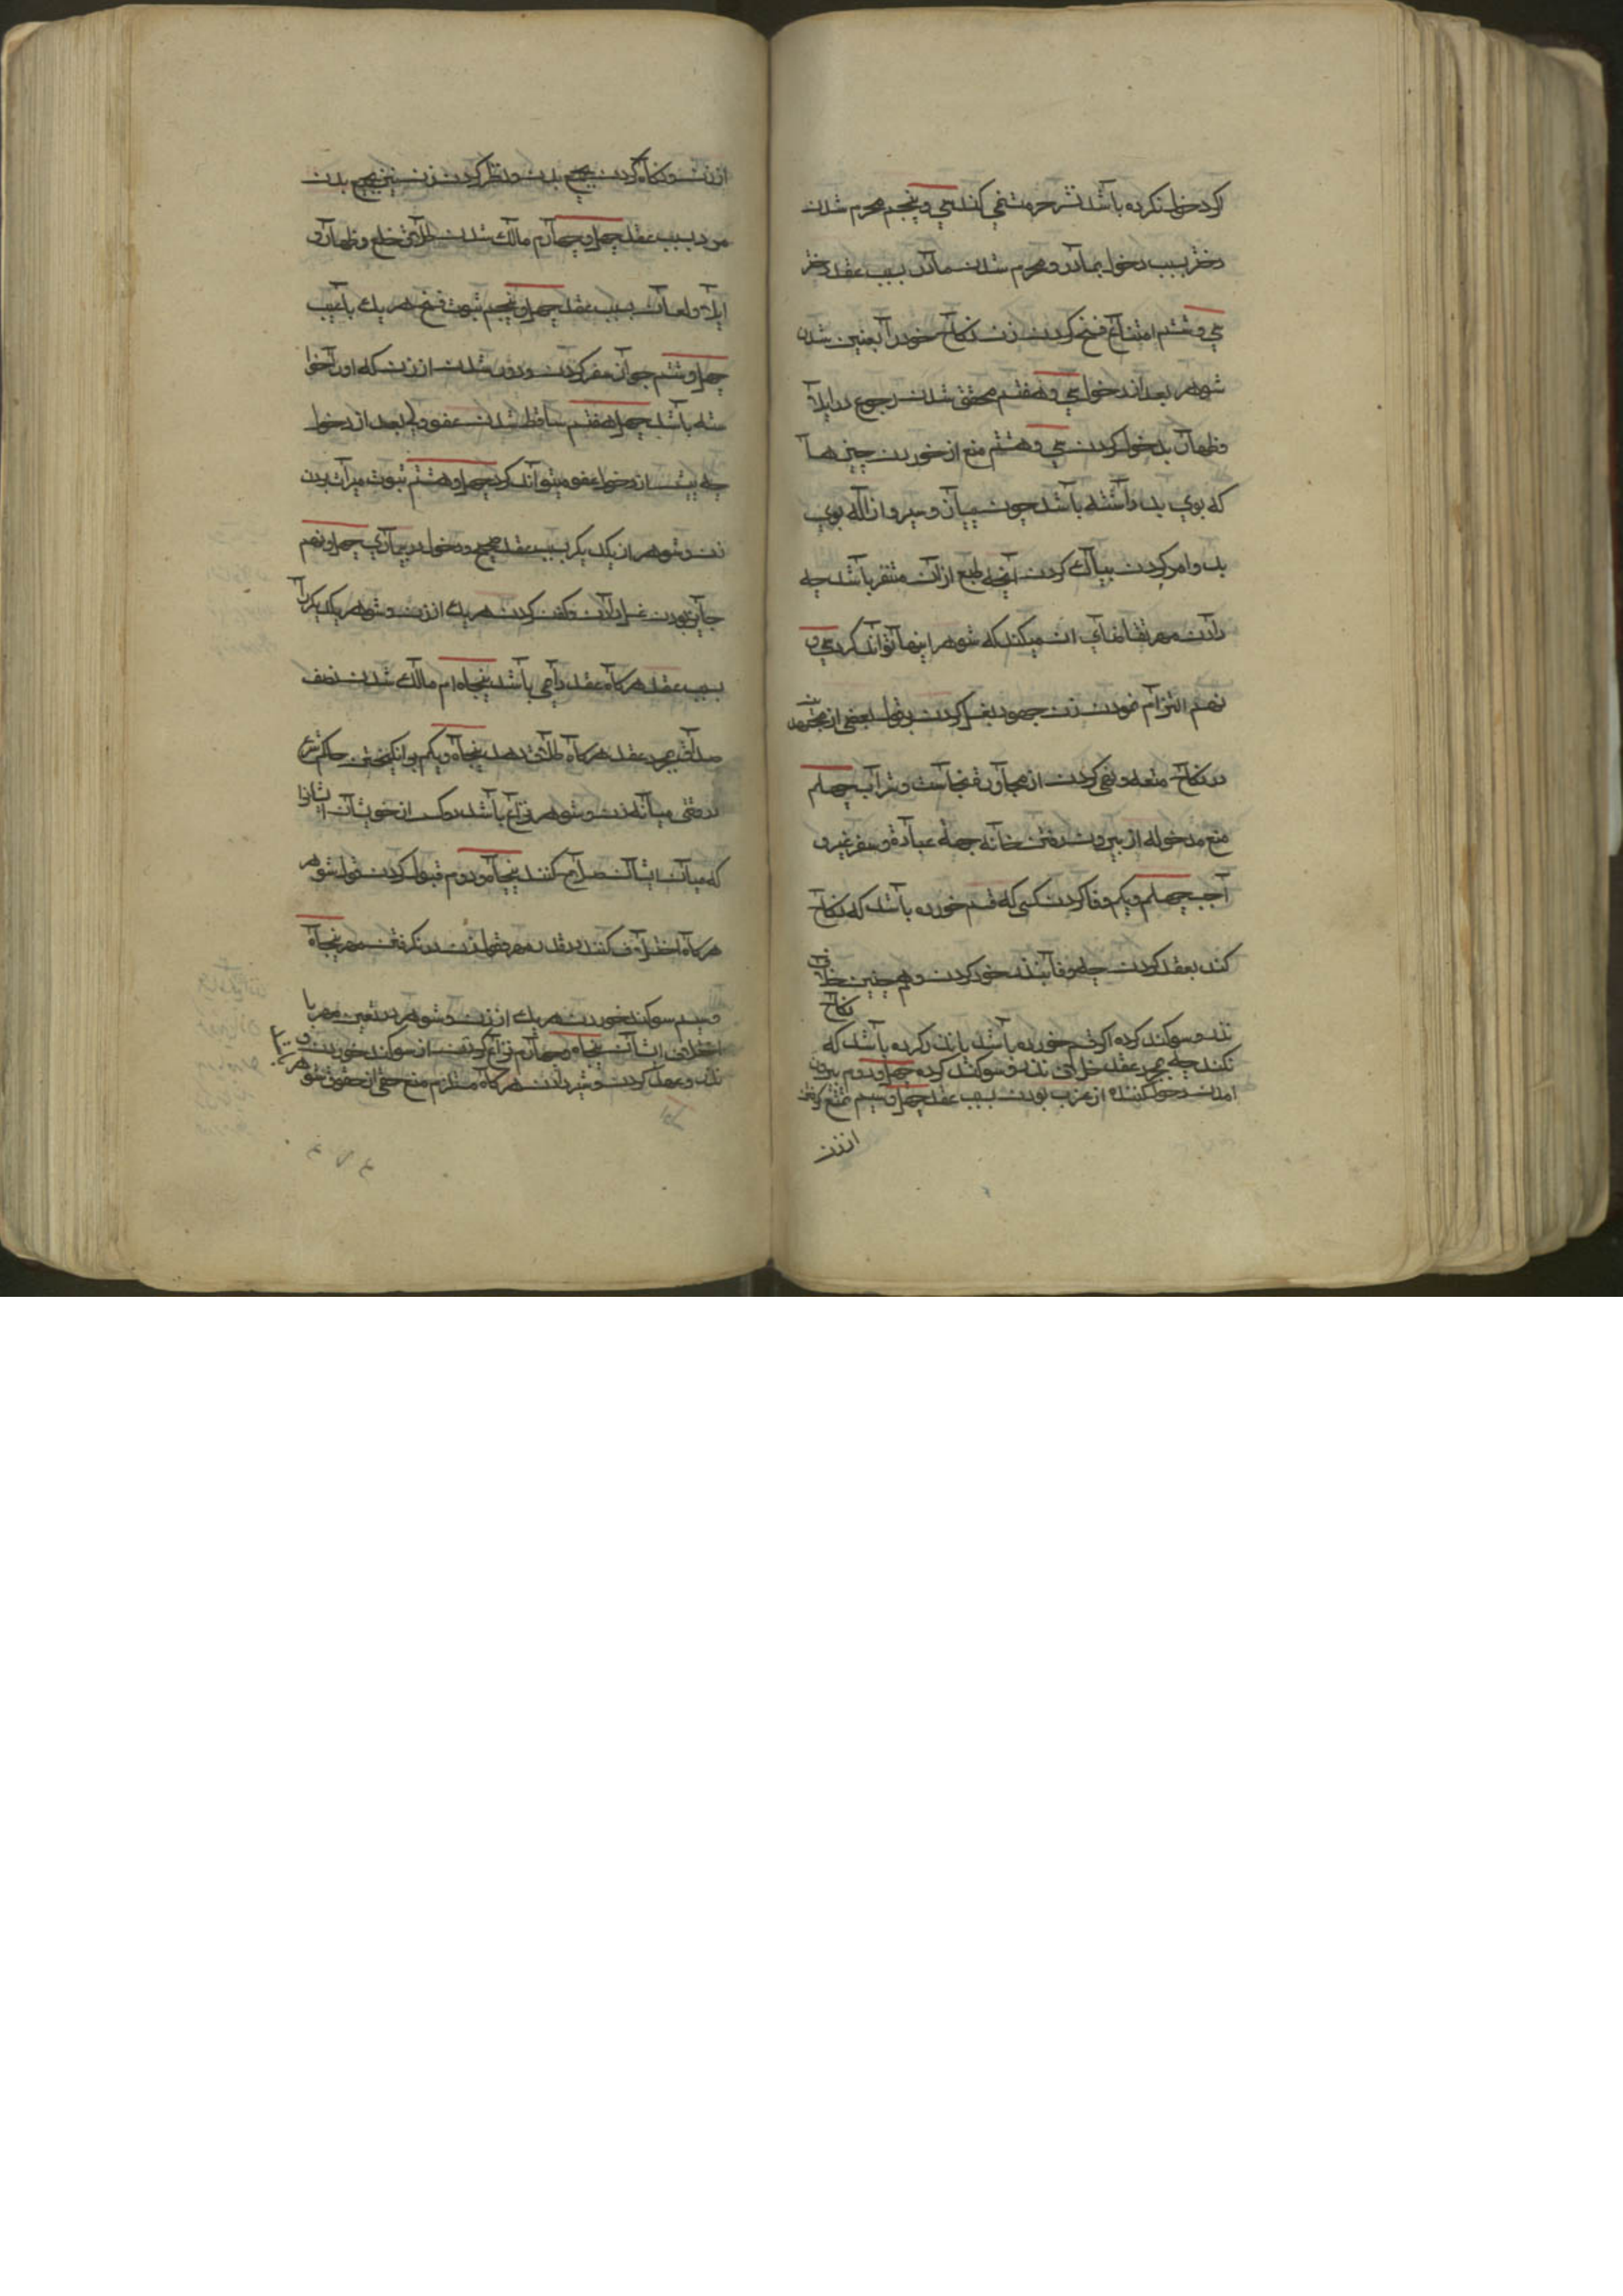 اگر دخول نکرده باشد نشر حرمت نمی کند سی و پنجم محرم شدن
دختر بسبب دخول بمادر و محرم شدن مادر بسبب عقد دختر
سی و ششم امتناع فسخ کردن زن نکاح خود را بعنین شدن
شوهر بعد از دخول سی و هفتم محقق شدن رجوع در ایلا
و ظهار بدخول کردن سی و هشتم منع از خوردن چیزها
که بوی بد داشته باشد چون پیاز و سیر و ازاله بوی
بد و امر کردن بپاک کردن آنچه طبع از آن متنفر باشد چه
دادن مهر تقاضای آن میکند که شوهر اینها تواند کرد سی و
نهم التزام نمودن زن جهود بغسل کردن بقول بعضی از مجتهدین
در نکاح متعه و نهی کردن از مجاورة نجاست و شراب چهلم
منع مدخوله از بیرون رفتن خانه جهة عبادة و سفر غیر و
اجب چهلم و یکم وفا کردن کسی که قسم خورده باشد که نکاح
کند بعقد کردن چه وفا بنذر خود کردن و هم چنین خلاف
نذر و سوکند کرده اگر قسم خورده باشد یا نذر کرده باشد که نکاح
نکند چه بمجرد عقد خلاف نذر و سوکند کرده چهل و دوم بیرون
امدن دخول کننده از عزب بودن بسبب عقد چهل و سیم تمتع گرفتن
از زن
از زن و نکاه کردن بجمیع بدن و نظر کردن زن نیز بجمیع بدن
مرد بسبب عقد چهل و چهارم مالک شدن طلاق و خلع و ظهار و
ایلا و لعان بسبب عقد چهل و پنجم ثبوت فسخ هر یک با عیب
چهل و ششم جواز سفر کردن و دور شدن از زن که او را دخول
شده باشد چهل و هفتم ساقط شدن عفو ولی بعد از دخول
چه پیش از دخول عفو میتواند کرد چهل و هشتم ثبوت میراث بردن
زن و شوهر از یکدیکر بسبب عقد صحیح و دخول در بیماری چهل و نهم
جایز بودن غسل دادن و کفن کردن هر یک از زن و شوهر یکدیکر را
بسبب عقد هرکاه عقد دایمی باشد پنجاه ام مالک شدن نصف
صداق بمجرد عقد هرکاه طلاق دهد پنجاه و یکم برانکیختن حاکم شرع
در وقتی میانه زن و شوهر نزاع باشد دو کس از خویشان ایشانرا
که میان ایشان صلح کنند پنجاه و دوم قبول کردن قول شوهر
هرکاه اختلاف کنند در قدر مهر و قول زن در نکرفتن مهر پنجاه
و سیم سوکند خوردن هر یک از زن و شوهر در تعین مهر با
اختلاف ایشان پنجاه و چهارم لازم کرفتن از سوکند خوردن و
نذر و عهد کردن و شیر دادن هرکاه مستلزم منع حقی از حقوق شوهر